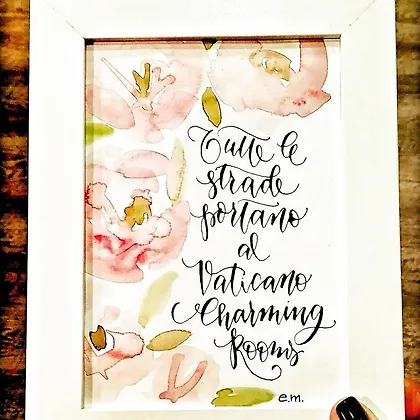 Tutte le
strade
portano
al
Vaticano
Charming
Rooms
e.m.